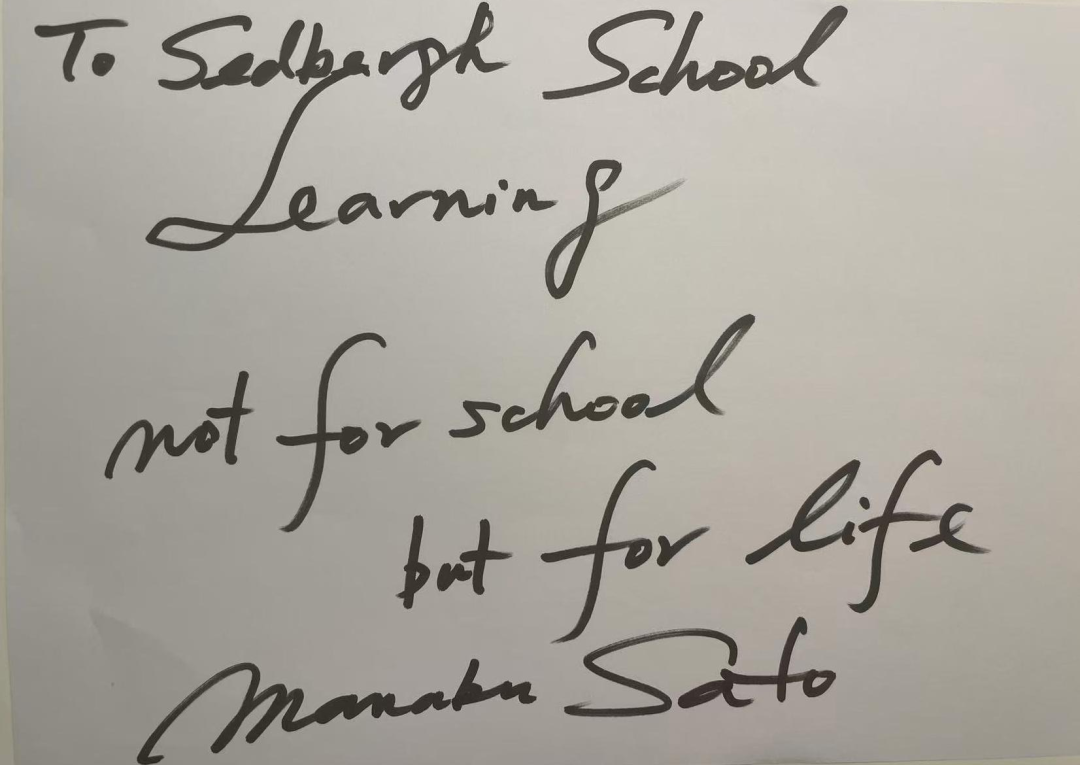 To Sedbergh School
Learning
not for school
but for life
Manabu Sato